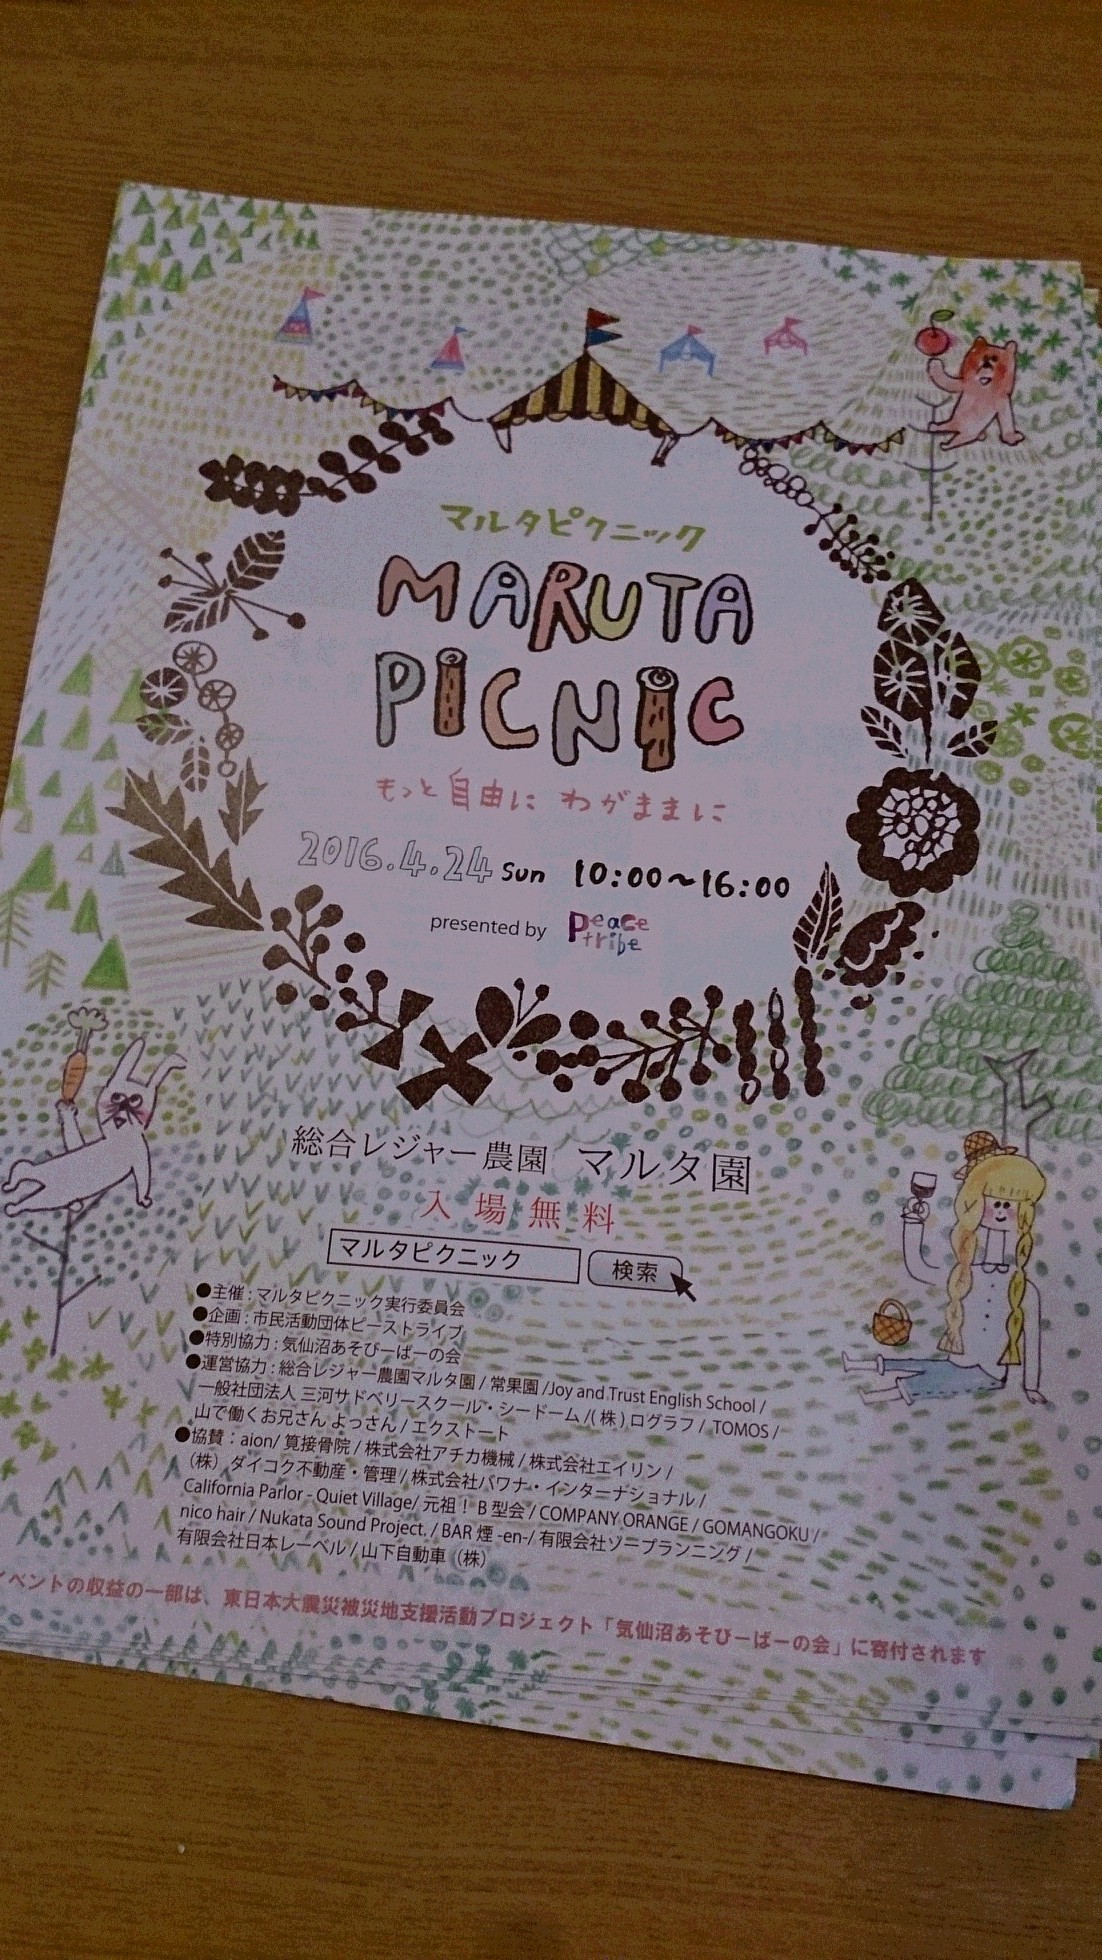 マルタピクニック
MARUTA
PICNIC
もっと自由に わがままに
2016.4.24 Sun 10:00～16:00
presented by Peace tribe
総合レジャー農園 マルタ園
入場無料
マルタピクニック 検索
●主催：マルタピクニック実行委員会
●企画：市民活動団体ピーストライブ
●特別協力：気仙沼あそびーばーの会
●運営協力：総合レジャー農園マルタ園 / 常果園 /Joy and Trust English School /
一般社団法人 三河サドベリースクール・シードーム /(株)ログラフ / TOMOS /
山で働くお兄さん よっさん / エクストート
●協賛：aion/ 筧接骨院 / 株式会社アチカ機械 / 株式会社エイリン /
（株）ダイコク不動産・管理 / 株式会社パワナ・インターナショナル /
California Parlor - Quiet Village/ 元祖！B型会 / COMPANY ORANGE / GOMANGOKU /
nico hair / Nukata Sound Project. / BAR 煙 -en-/ 有限会社ゾニプランニング /
有限会社日本レーベル / 山下自動車（株）
イベントの収益の一部は、東日本大震災被災地支援活動プロジェクト「気仙沼あそびーばーの会」に寄付されます